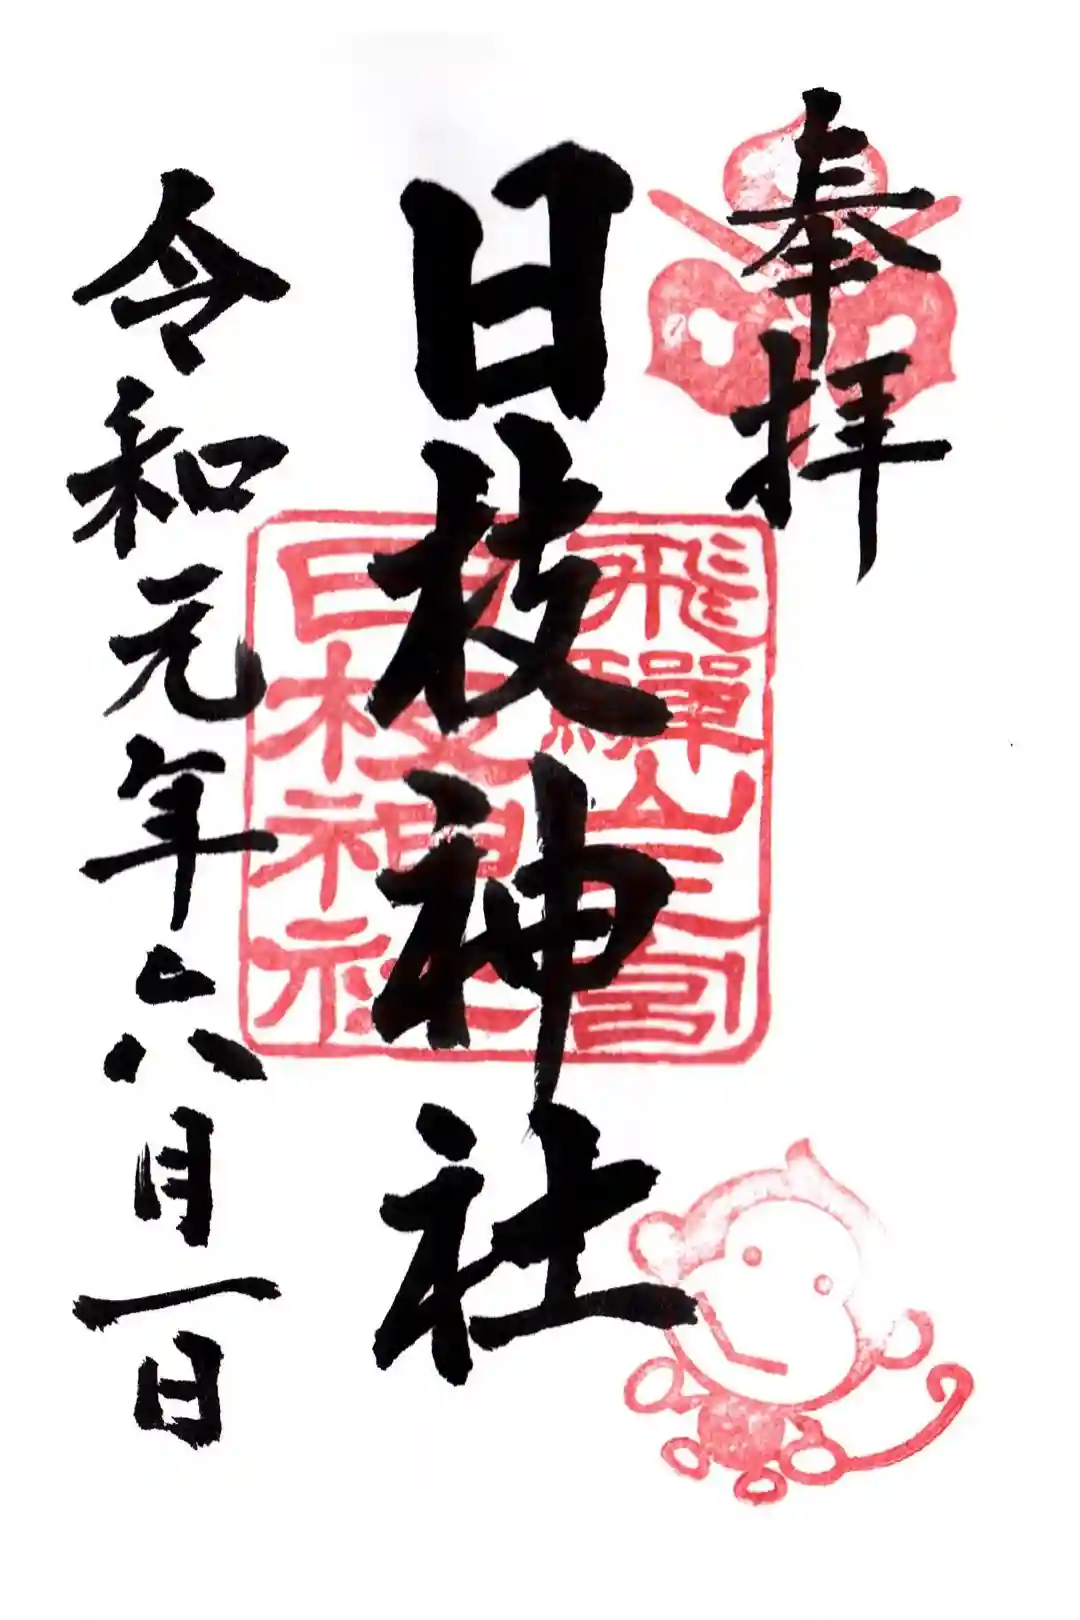 奉拝
飛驒山王宮
日枝神社
日枝神社
令和元年六月一日